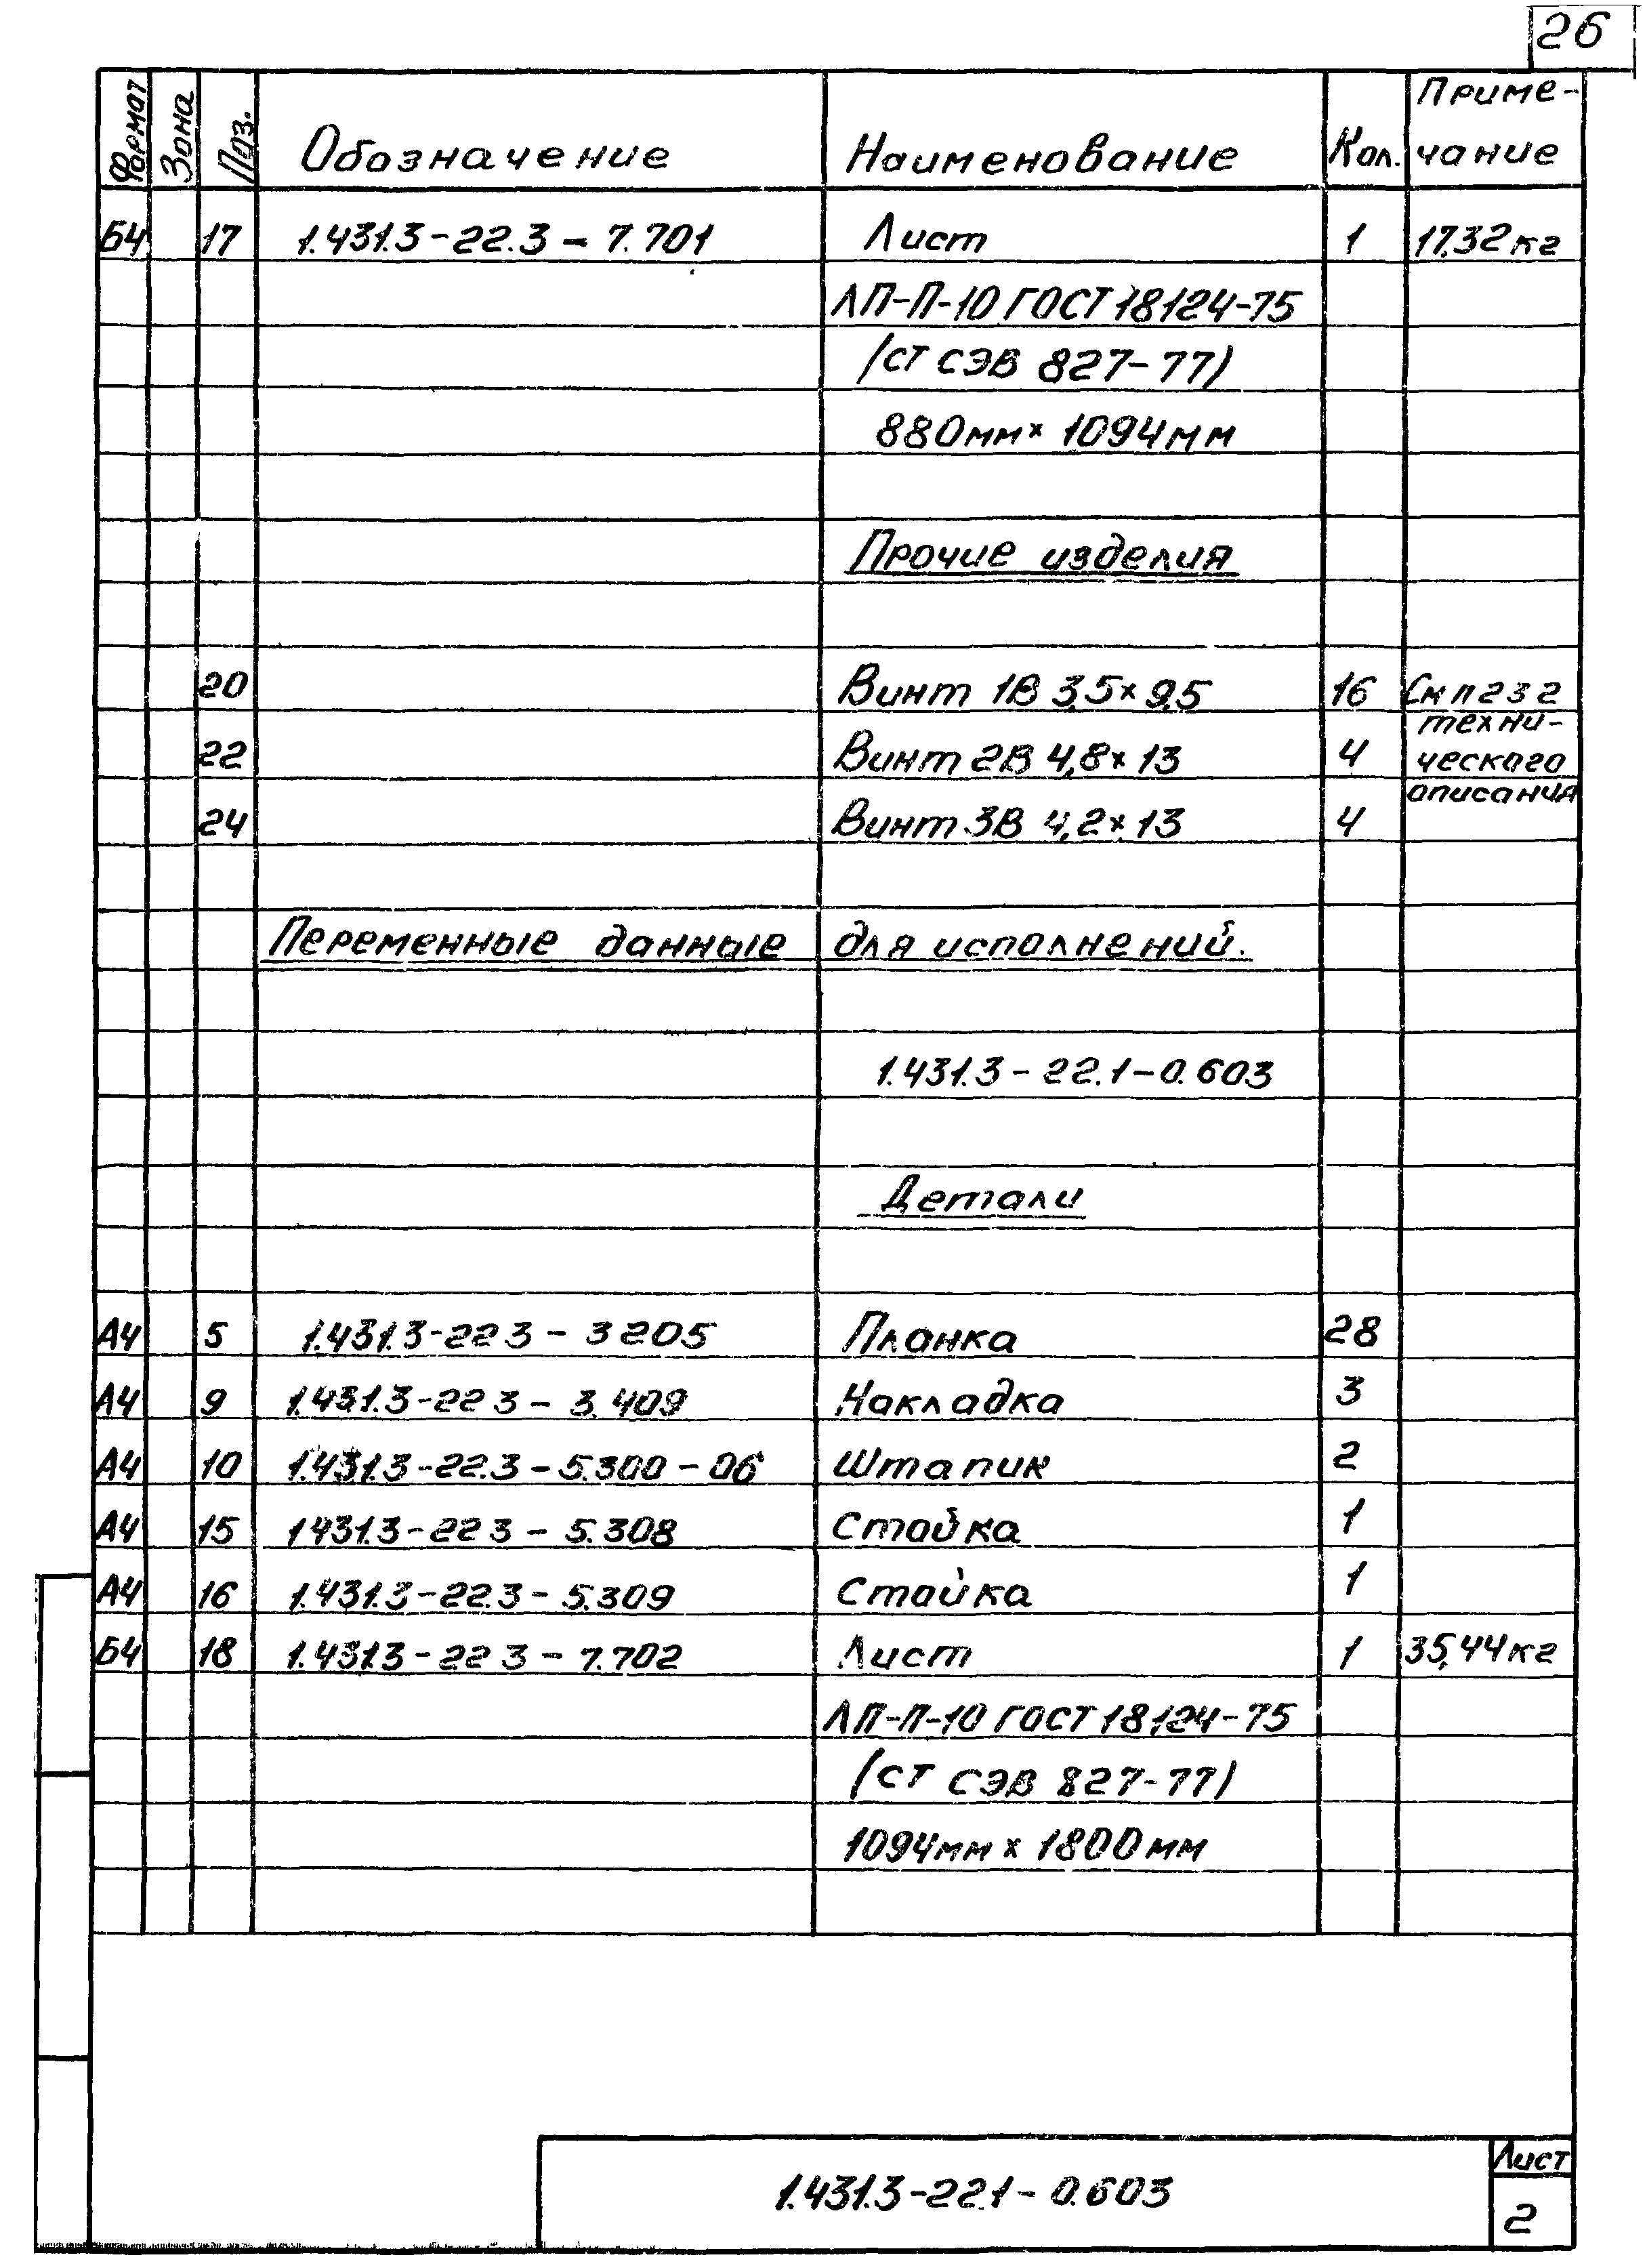 26
Формат Зона Поз. Обозначение Наименование Кол. Приме-
чание
Б4 17 1.431.3-22.3-7.701 Лист 1 17,32 кг
ЛП-П-10 ГОСТ 18124-75
(СТ СЭВ 827-77)
880мм × 1094мм
Прочие изделия
20 Винт 1В 3,5×9,5 16 См п 2 3 2
техни-
22 Винт 2В 4,8×13 4 ческого
описания
24 Винт 3В 4,2×13 4
Переменные данные для исполнений.
1.431.3-22.1-0.603
Детали
А4 5 1.431.3-22 3-3 205 Планка 28
А4 9 1.431.3-22 3-3.409 Накладка 3
А4 10 1.431.3-22.3-5.300-06 Штапик 2
А4 15 1431.3-22 3-5.308 Стойка 1
А4 16 1.431.3-22.3-5.309 Стойка 1
Б4 18 1.431.3-22 3-7.702 Лист 1 35,44 кг
ЛП-П-10 ГОСТ 18124-75
(СТ СЭВ 827-77)
1094мм х 1800мм
1.431.3-22.1-0.603
Лист
2